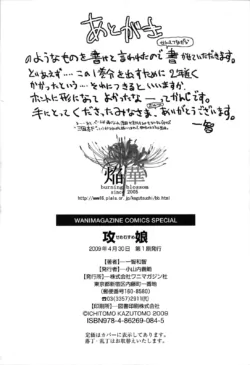 あとがき
のようなものを書けと言われたので書かせていただきます。
とりあえず…この1巻を出すために2年近く
かかったという…それにつきるといいますか、
ホントに形になってよかったな――ってかんじです。
手にとってくださったみなさま、ありがとうございます。
一智
焔華
burning blossom
since 2005
WANIMAGAZINE COMICS SPECIAL
攻め娘
2009年4月30日 第1刷発行
【著者】―一智和智
【発行者】―小山内義勧
【発行所】―株式会社ワニマガジン社
東京都新宿区内藤町一番地
(郵便番号160-8560)
☎03(3357)2911㈹
【印刷所】―図書印刷株式会社
©ICHITOMO KAZUTOMO 2009
ISBN978-4-86269-084-5
定価はカバーに表示してあります。
落丁・乱丁はお取替えいたします。